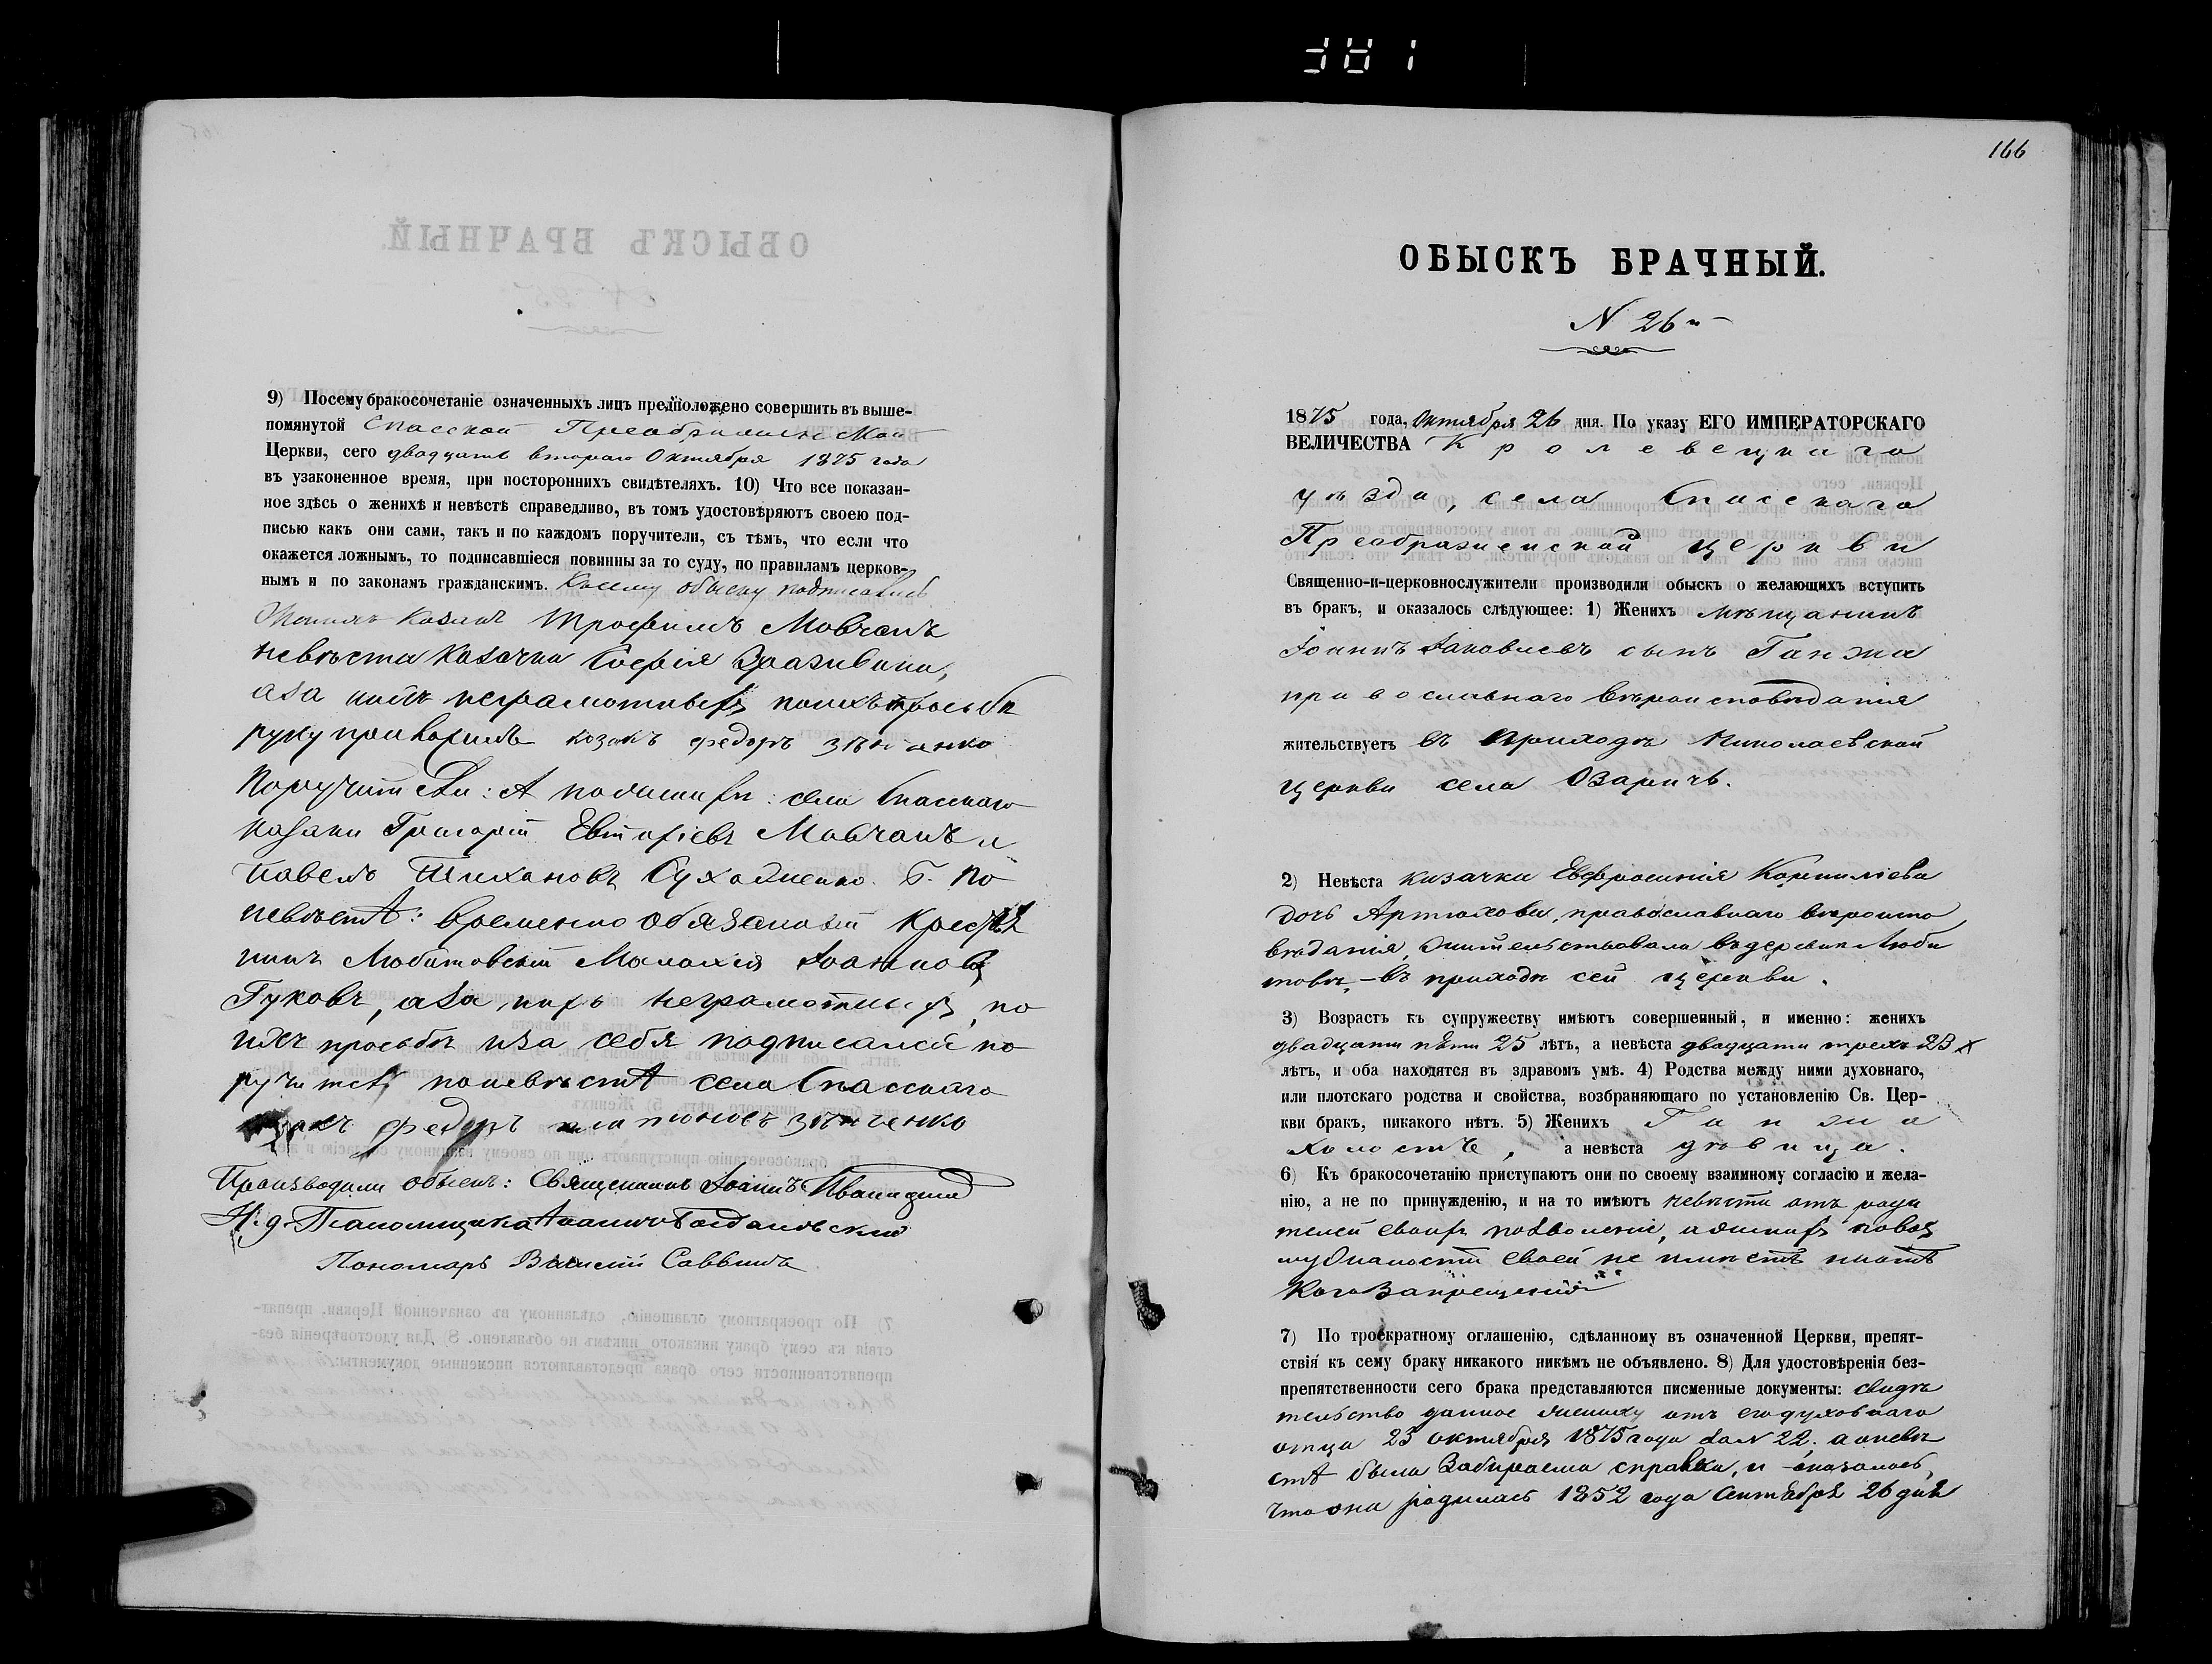 9) Посему бракосочетаніе означенныхъ лицъ предположено совершить въ выше-
помянутой Спасской Преображенской
Церкви, сего двадцать втораго Октября 1875 года
въ узаконенное время, при постороннихъ свидѣтеляхъ. 10) Что все показан-
ное здѣсь о женихѣ и невѣстѣ справедливо, въ томъ удостовѣряютъ своею под-
писью какъ они сами, такъ и по каждомъ поручители, съ тѣмъ, что если что
окажется ложнымъ, то подписавшіеся повинны за то суду, по правиламъ церков-
нымъ и по законамъ гражданскимъ. Къ сему обыску подписались
Женихъ козакъ Трофимъ Мовчанъ
невѣста козачка Софія
а за нихъ неграмотныхъ по ихъ просьбѣ
руку приложилъ козакъ федоръ зѣнченко
Поручители: А по женихѣ: села Спасскаго
козаки Григорій Мовчанъ и
Павелъ Тихановъ Б. По
невѣстѣ: временно обязанный крестья
нинъ Любитовскій Малахія Іоанновъ
Гуковъ, а за нихъ неграмотныхъ, по
ихъ просьбѣ и за себя подписался по
ручитель по невѣстѣ села Спасскаго
федоръ платоновъ зѣнченко
Производили обыскъ: Священникъ Іоаннъ
И. д. Псаломщика
Пономарь Василій Саввинъ
166
ОБЫСКЪ БРАЧНЫЙ.
N 26й
1875 года, Октября 26 дня. По указу ЕГО ИМПЕРАТОРСКАГО
ВЕЛИЧЕСТВА Кролевецкаго
уѣзда, села Спасскаго
Преображенской церкви
Священно-и-церковнослужители производили обыскъ о желающихъ вступить
въ бракъ, и оказалось слѣдующее: 1) Женихъ мѣщанинъ
Іоаннъ Іаковлевъ сынъ Ганжа
православнаго вѣроисповѣданія
жительствуетъ въ приходѣ Николаевской
церкви села Озаричъ.
2) Невѣста козачка Евфросинія Корниліева
дочь Артюхова, православнаго вѣроиспо
вѣданія, жительствовала въ деревнѣ Люби
товѣ, – въ приходѣ сей церкви.
3) Возрастъ къ супружеству имѣютъ совершенный, и именно: женихъ
двадцати пяти 25 лѣтъ, а невѣста двадцати трехъ 23х
лѣтъ, и оба находятся въ здравомъ умѣ. 4) Родства между ними духовнаго,
или плотскаго родства и свойства, возбраняющаго по установленію Св. Цер-
кви бракъ, никакого нѣтъ. 5) Женихъ Ганжа
холостъ, а невѣста дѣвица.
6) Къ бракосочетанію приступаютъ они по своему взаимному согласію и жела-
нію, а не по принужденію, и на то имѣютъ невѣста отъ роди
телей своихъ позволеніе, а женихъ по воз
мужалости своей не имѣетъ ни отъ
кого запрещенія
7) По троекратному оглашенію, сдѣланному въ означенной Церкви, препят-
ствія къ сему браку никакого никѣмъ не объявлено. 8) Для удостовѣренія без-
препятственности сего брака представляются писменные документы: свидѣ
тельство данное жениху отъ его духовнаго
отца 23 октября 1875 года за N 22. а о невѣ
стѣ была забираема справка, и оказалось,
что она родилась 1852 года Сентября 26 дня